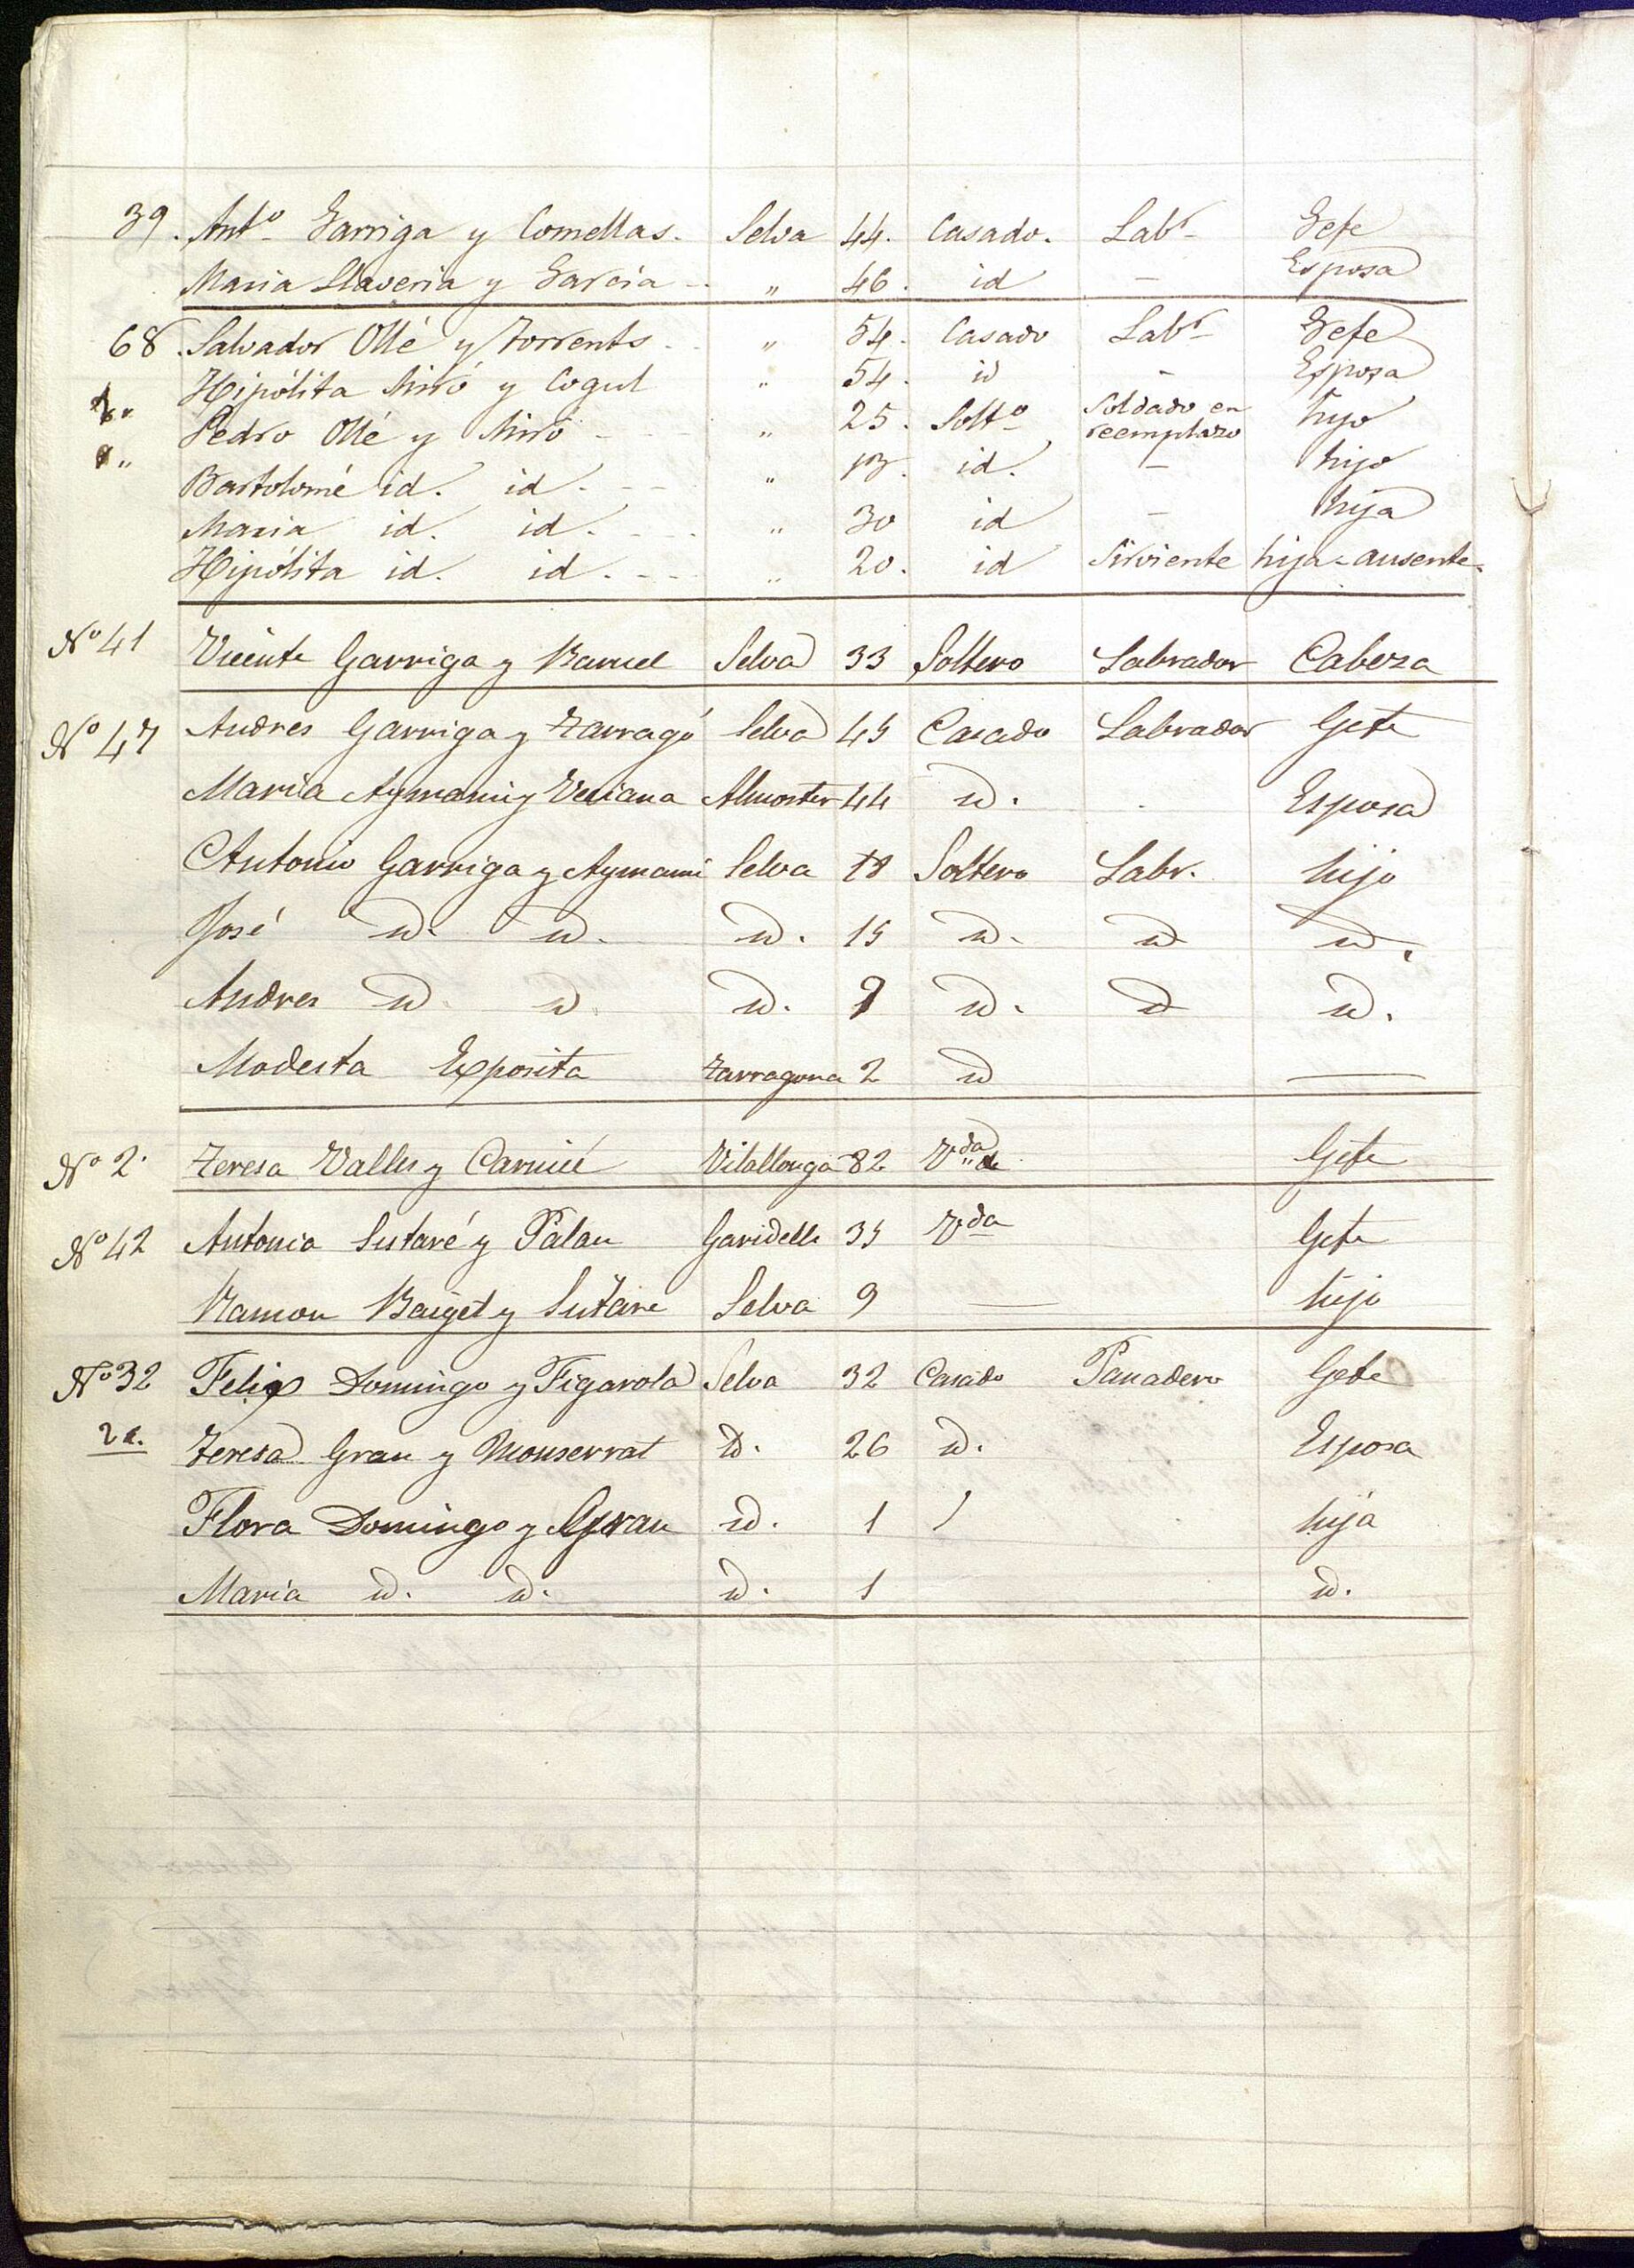 39. Ant.º Garriga y Comellas. Selva 44. Casado. Lab.r Gefe
Maria Llaveria y Garcia " 46. id — Esposa
68. Salvador Ollé y Torrents " 54. Casado Lab.r Gefe
Hipólita Miró y Cogul " 54. id - Esposa
Pedro Ollé y Miró " 25. Solt.º Soldado en reemplazo hijo
Bartolomé id. id. " 13. id. — hijo
Maria id. id. " 30 id — hija
Hipólita id. id. " 20. id Sirviente hija-ausente.
Nº 41 Vicente Garriga y Barnel Selva 33 Soltero Labrador Cabeza
Nº 47 Andres Garriga y Tarragó Selva 45 Casado Labrador Gefe
Maria Aymami y Veciana Almoster 44 id. Esposa
Antonio Garriga y Aymami Selva 18 Soltero Labr. hijo
José id. id. id. 15 id. id id.
Andres id id id. 9 id. id id.
Modesta Exposita Tarragona 2 id —
Nº 2. Teresa Valles y Vilallonga 82 Vda Gefe
Nº 42 Antonia Sutaré y Palau Garidells 35 Vda Gefe
Ramon Baiget y Sutare Selva 9 — hijo
Nº 32 Felip Domingo y Figarola Selva 32 Casado Panadero Gefe
Teresa Grau y Monserrat id. 26 id. Esposa
Flora Domingo y Grau id. 1 hija
Maria id. id. id. 1 id.